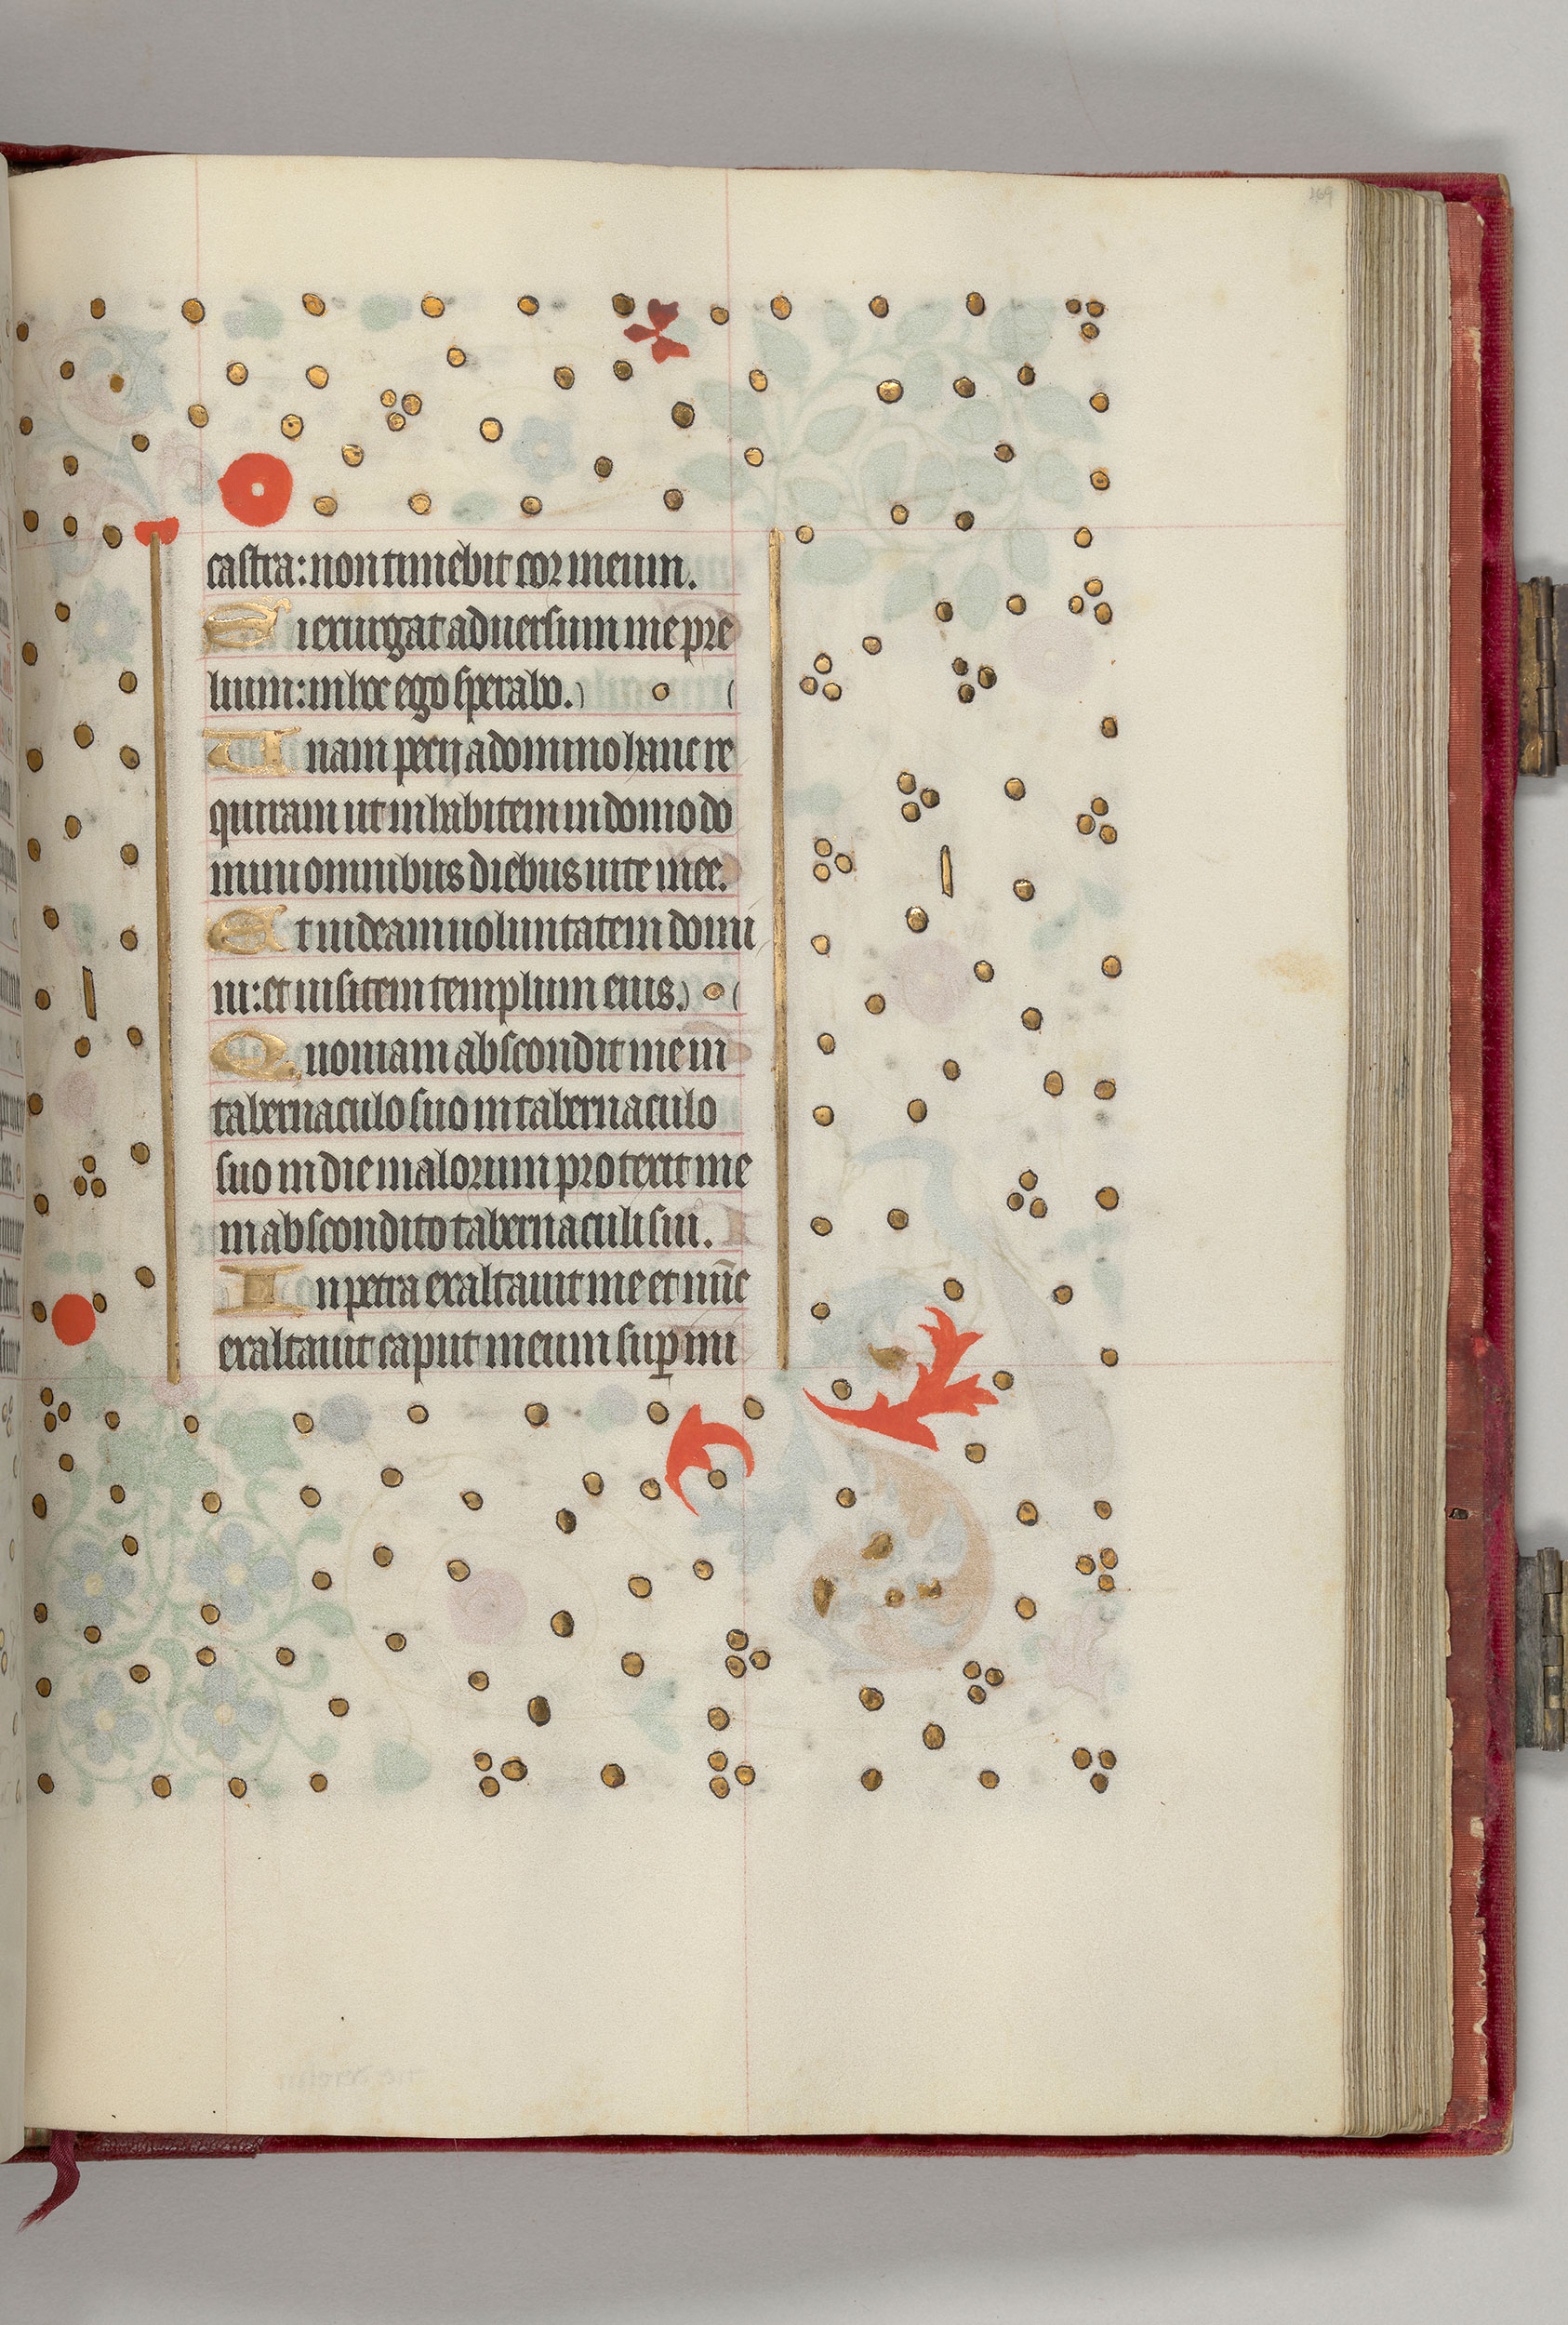 169
castra: non timebit cor meum.
Si exurgat aduersum me pre
lium: in hoc ego sperabo.
Unam pecij a domino hanc re
quiram ut inhabitem in domo do
mini omnibus diebus uite mee.
Et uideam uoluntatem domi
ni: et uisitem templum eius.
Quoniam abscondit me in
tabernaculo suo in tabernaculo
suo in die malorum protexit me
in abscondito tabernaculi sui.
In petra exaltauit me et nūc
exaltauit caput meum sup̱ mi